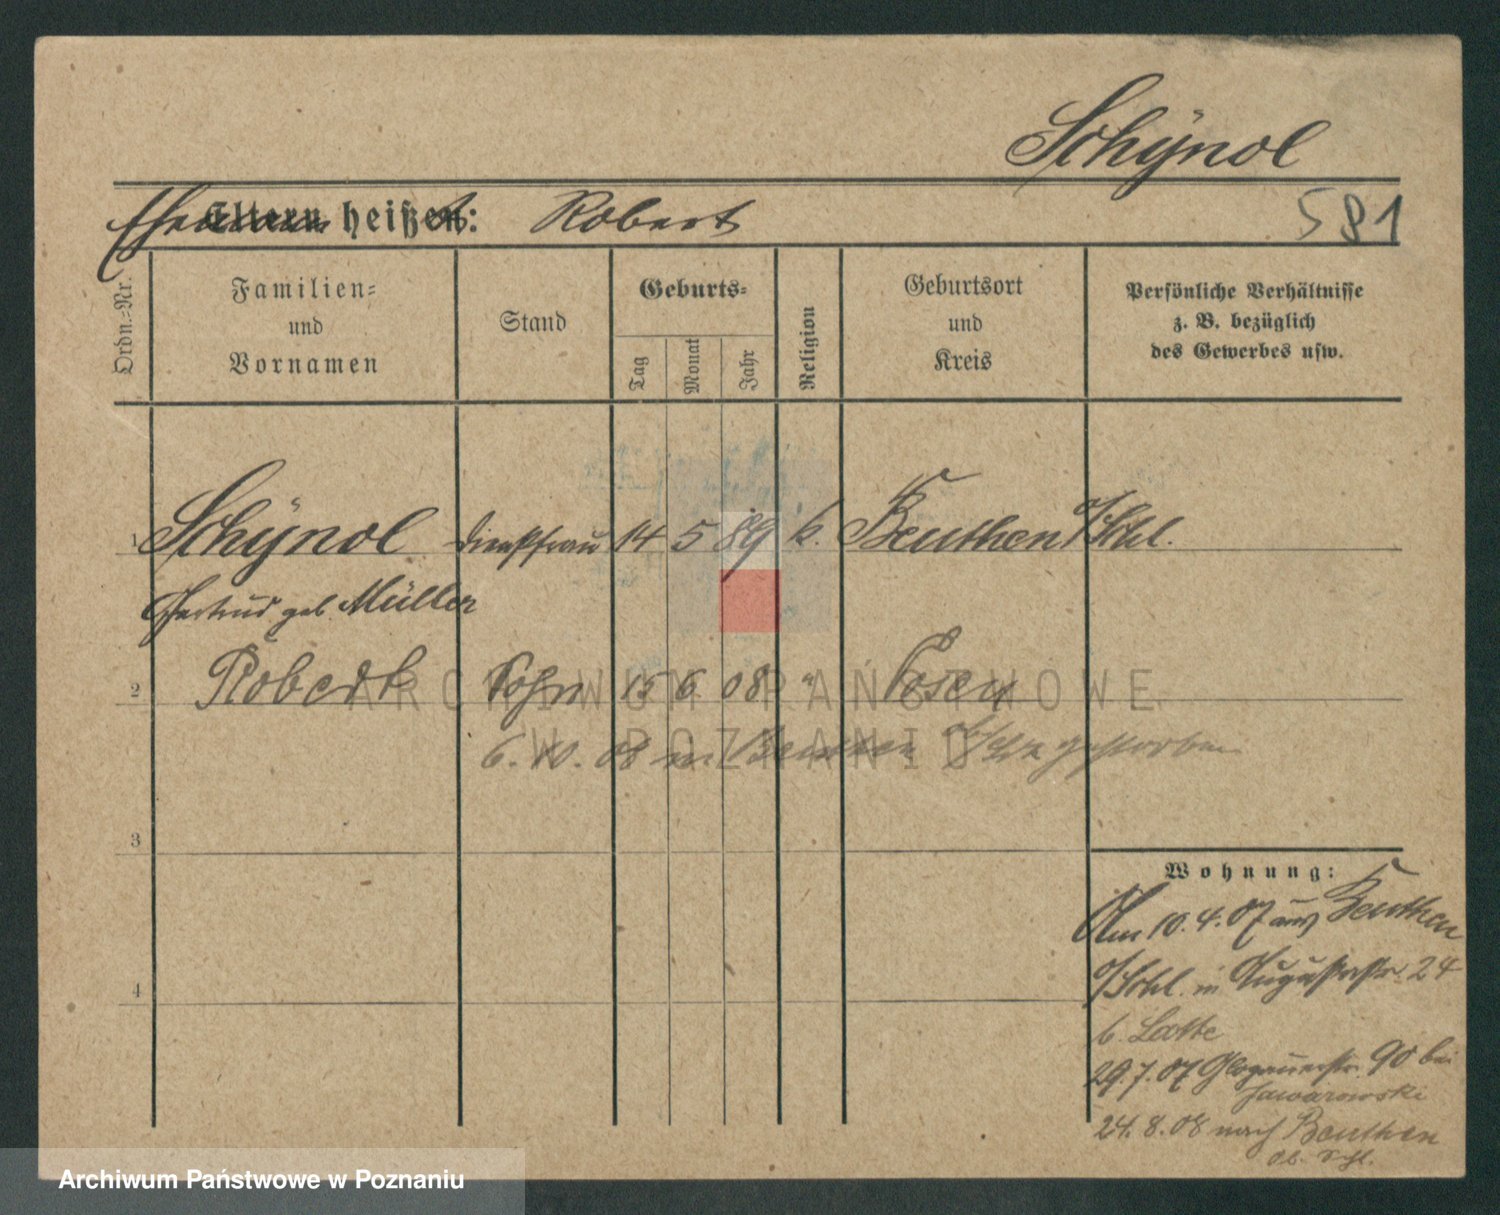 Schÿnol
Ehemann Eltern heißen: Robert
581
Ordn.-Nr.
Familien-
und
Vornamen
Stand
Geburts-
Tag
Monat
Jahr
Religion
Geburtsort
und
Kreis
Persönliche Verhältnisse
z. B. bezüglich
des Gewerbes usw.
1 Schÿnol 14 5 89 k. Beuthen O/Schl.
Gertrud geb. Müller
2 Robert Sohn 15 6 08 " Posen
6. 10. 08 in Beuthen gestorben
3
4
Wohnung:
Am 10.4.07 aus Beuthen
O/Schl. in Augustastr. 24
b. Lotte
29.7.07 Glogauerstr. 90 bei
Jaworowski
24.8.08 nach Beuthen
Ob. Schl.
ARCHIWUM PAŃSTWOWE
W POZNANIU
Archiwum Państwowe w Poznaniu